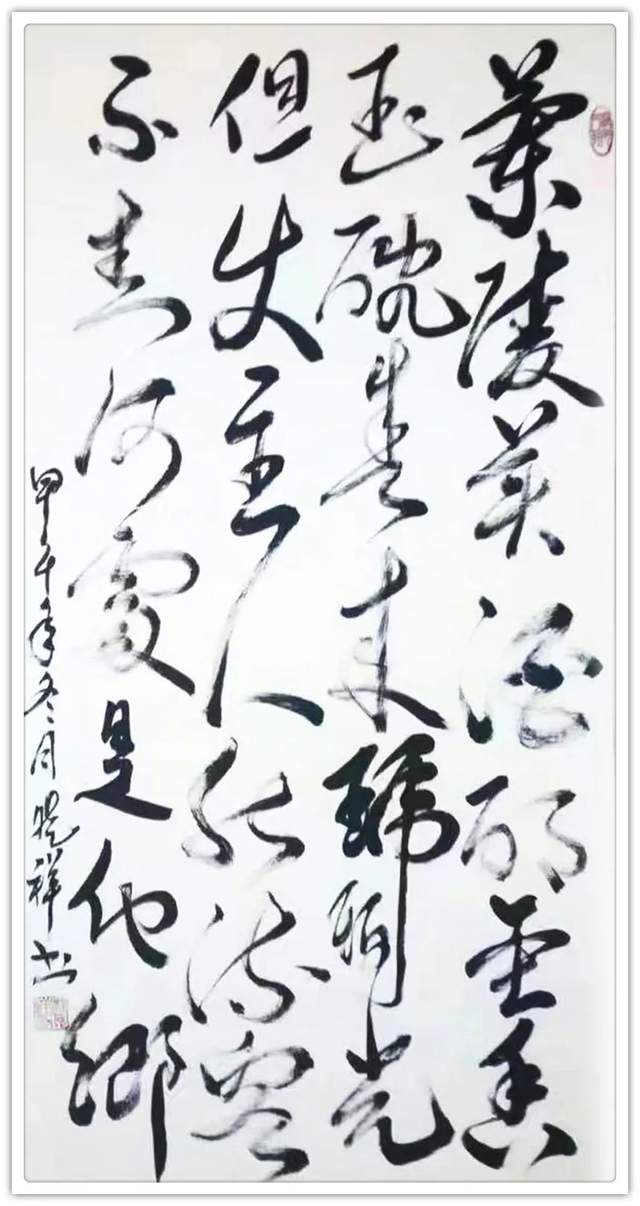 蘭陵美酒郁金香
玉碗盛来琥珀光
但使主人能醉客
不知何處是他鄉
甲午年冬月曉祥书